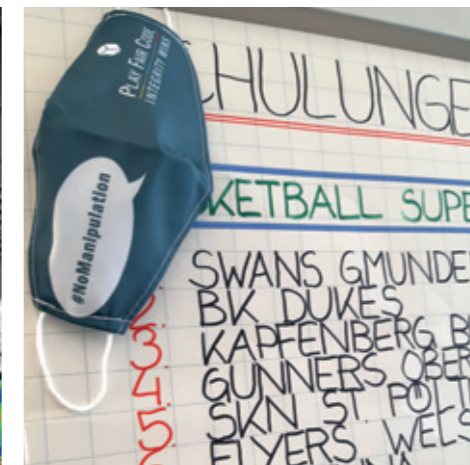 PLAY FAIR CODE
INTEGRITY WINS
#NoManipulation
CHULUNGE
KETBALL SUPE
SWANS GMUNDE
BK DUKES
KAPFENBERG B
GUNNERS OBER
SKN ST. PÖLT
FLYERS WELS